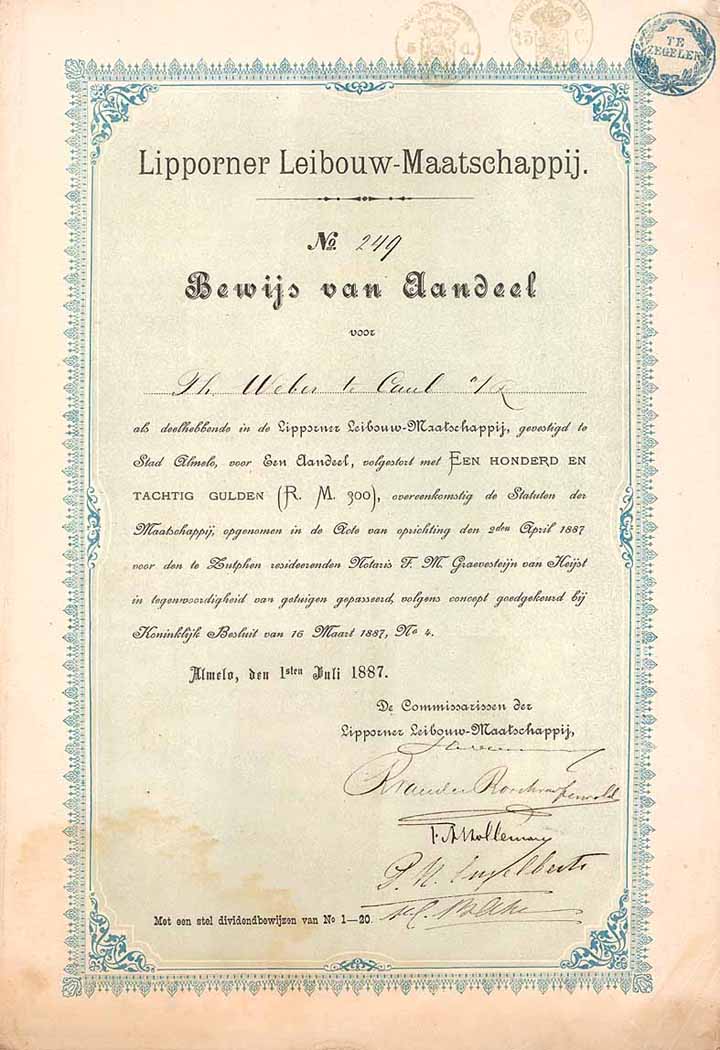 5 C.
15 C.
TE
ZEGELEN
Lipporner Leibouw-Maatschappij.
No. 249
Bewijs van Aandeel
voor
Th. Weber te Caub a/R
als deelhebbende in de Lipporner Leibouw-Maatschappij, gevestigd te
Stad Almelo, voor Een Aandeel, volgestort met EEN HONDERD EN
TACHTIG GULDEN (R. M. 300), overeenkomstig de Statuten der
Maatschappij, opgenomen in de Acte van oprichting den 2den April 1887
voor den te Zutphen resideerenden Notaris F. M. Graevesteijn van Heijst
in tegenwoordigheid van getuigen gepasseerd, volgens concept goedgekeurd bij
Koninklijk Besluit van 16 Maart 1887, No 4.
Almelo, den 1sten Juli 1887.
De Commissarissen der
Lipporner Leibouw-Maatschappij,
P. N. Engelberts
Met een stel dividendbewijzen van No 1—20.